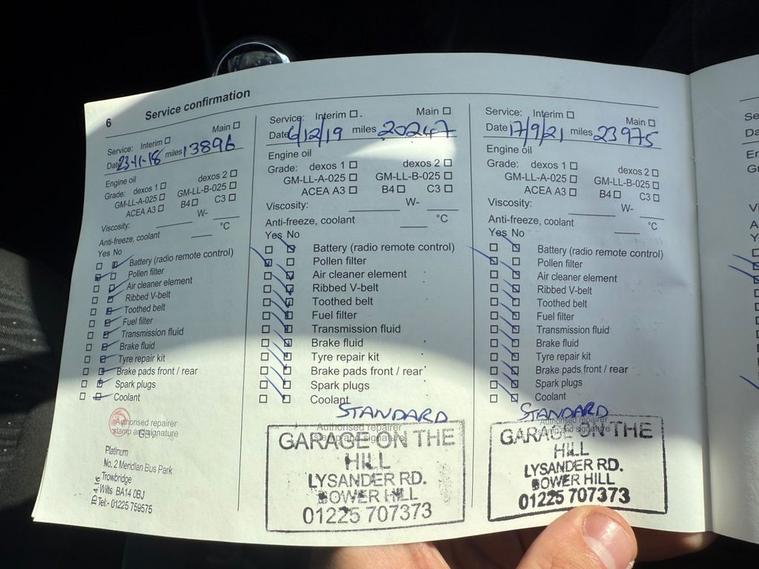 6 Service confirmation
Service: Interim ☐ Main ☐
Date 23-11-18 miles 13896
Engine oil
Grade: dexos 1 ☐ dexos 2 ☐
GM-LL-A-025 ☐ GM-LL-B-025 ☐
ACEA A3 ☐ B4 ☐ C3 ☐
Viscosity: W-
Anti-freeze, coolant °C
Yes No
Battery (radio remote control)
Pollen filter
Air cleaner element
Ribbed V-belt
Toothed belt
Fuel filter
Transmission fluid
Brake fluid
Tyre repair kit
Brake pads front / rear
Spark plugs
Coolant
Authorised repairer
stamp and signature
Platinum
No. 2 Meridian Bus Park
Trowbridge
Wilts BA14 0BJ
Tel:- 01225 759575
Service: Interim ☐ Main ☐
Date 6/12/19 miles 20247
Engine oil
Grade: dexos 1 ☐ dexos 2 ☐
GM-LL-A-025 ☐ GM-LL-B-025 ☐
ACEA A3 ☐ B4 ☐ C3 ☐
Viscosity: W-
Anti-freeze, coolant °C
Yes No
Battery (radio remote control)
Pollen filter
Air cleaner element
Ribbed V-belt
Toothed belt
Fuel filter
Transmission fluid
Brake fluid
Tyre repair kit
Brake pads front / rear
Spark plugs
Coolant
STANDARD
Authorised repairer
stamp and signature
GARAGE ON THE
HILL
LYSANDER RD.
BOWER HILL
01225 707373
Service: Interim ☐ Main ☐
Date 17/9/21 miles 23975
Engine oil
Grade: dexos 1 ☐ dexos 2 ☐
GM-LL-A-025 ☐ GM-LL-B-025 ☐
ACEA A3 ☐ B4 ☐ C3 ☐
Viscosity: W-
Anti-freeze, coolant °C
Yes No
Battery (radio remote control)
Pollen filter
Air cleaner element
Ribbed V-belt
Toothed belt
Fuel filter
Transmission fluid
Brake fluid
Tyre repair kit
Brake pads front / rear
Spark plugs
Coolant
STANDARD
Authorised repairer
stamp and signature
GARAGE ON THE
HILL
LYSANDER RD.
BOWER HILL
01225 707373